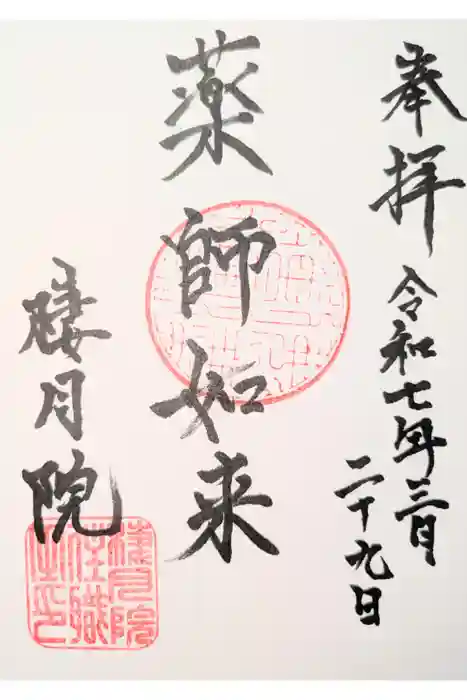 奉拝
令和七年三月
二十九日
薬師如来
棲月院
棲月院
住職
之印